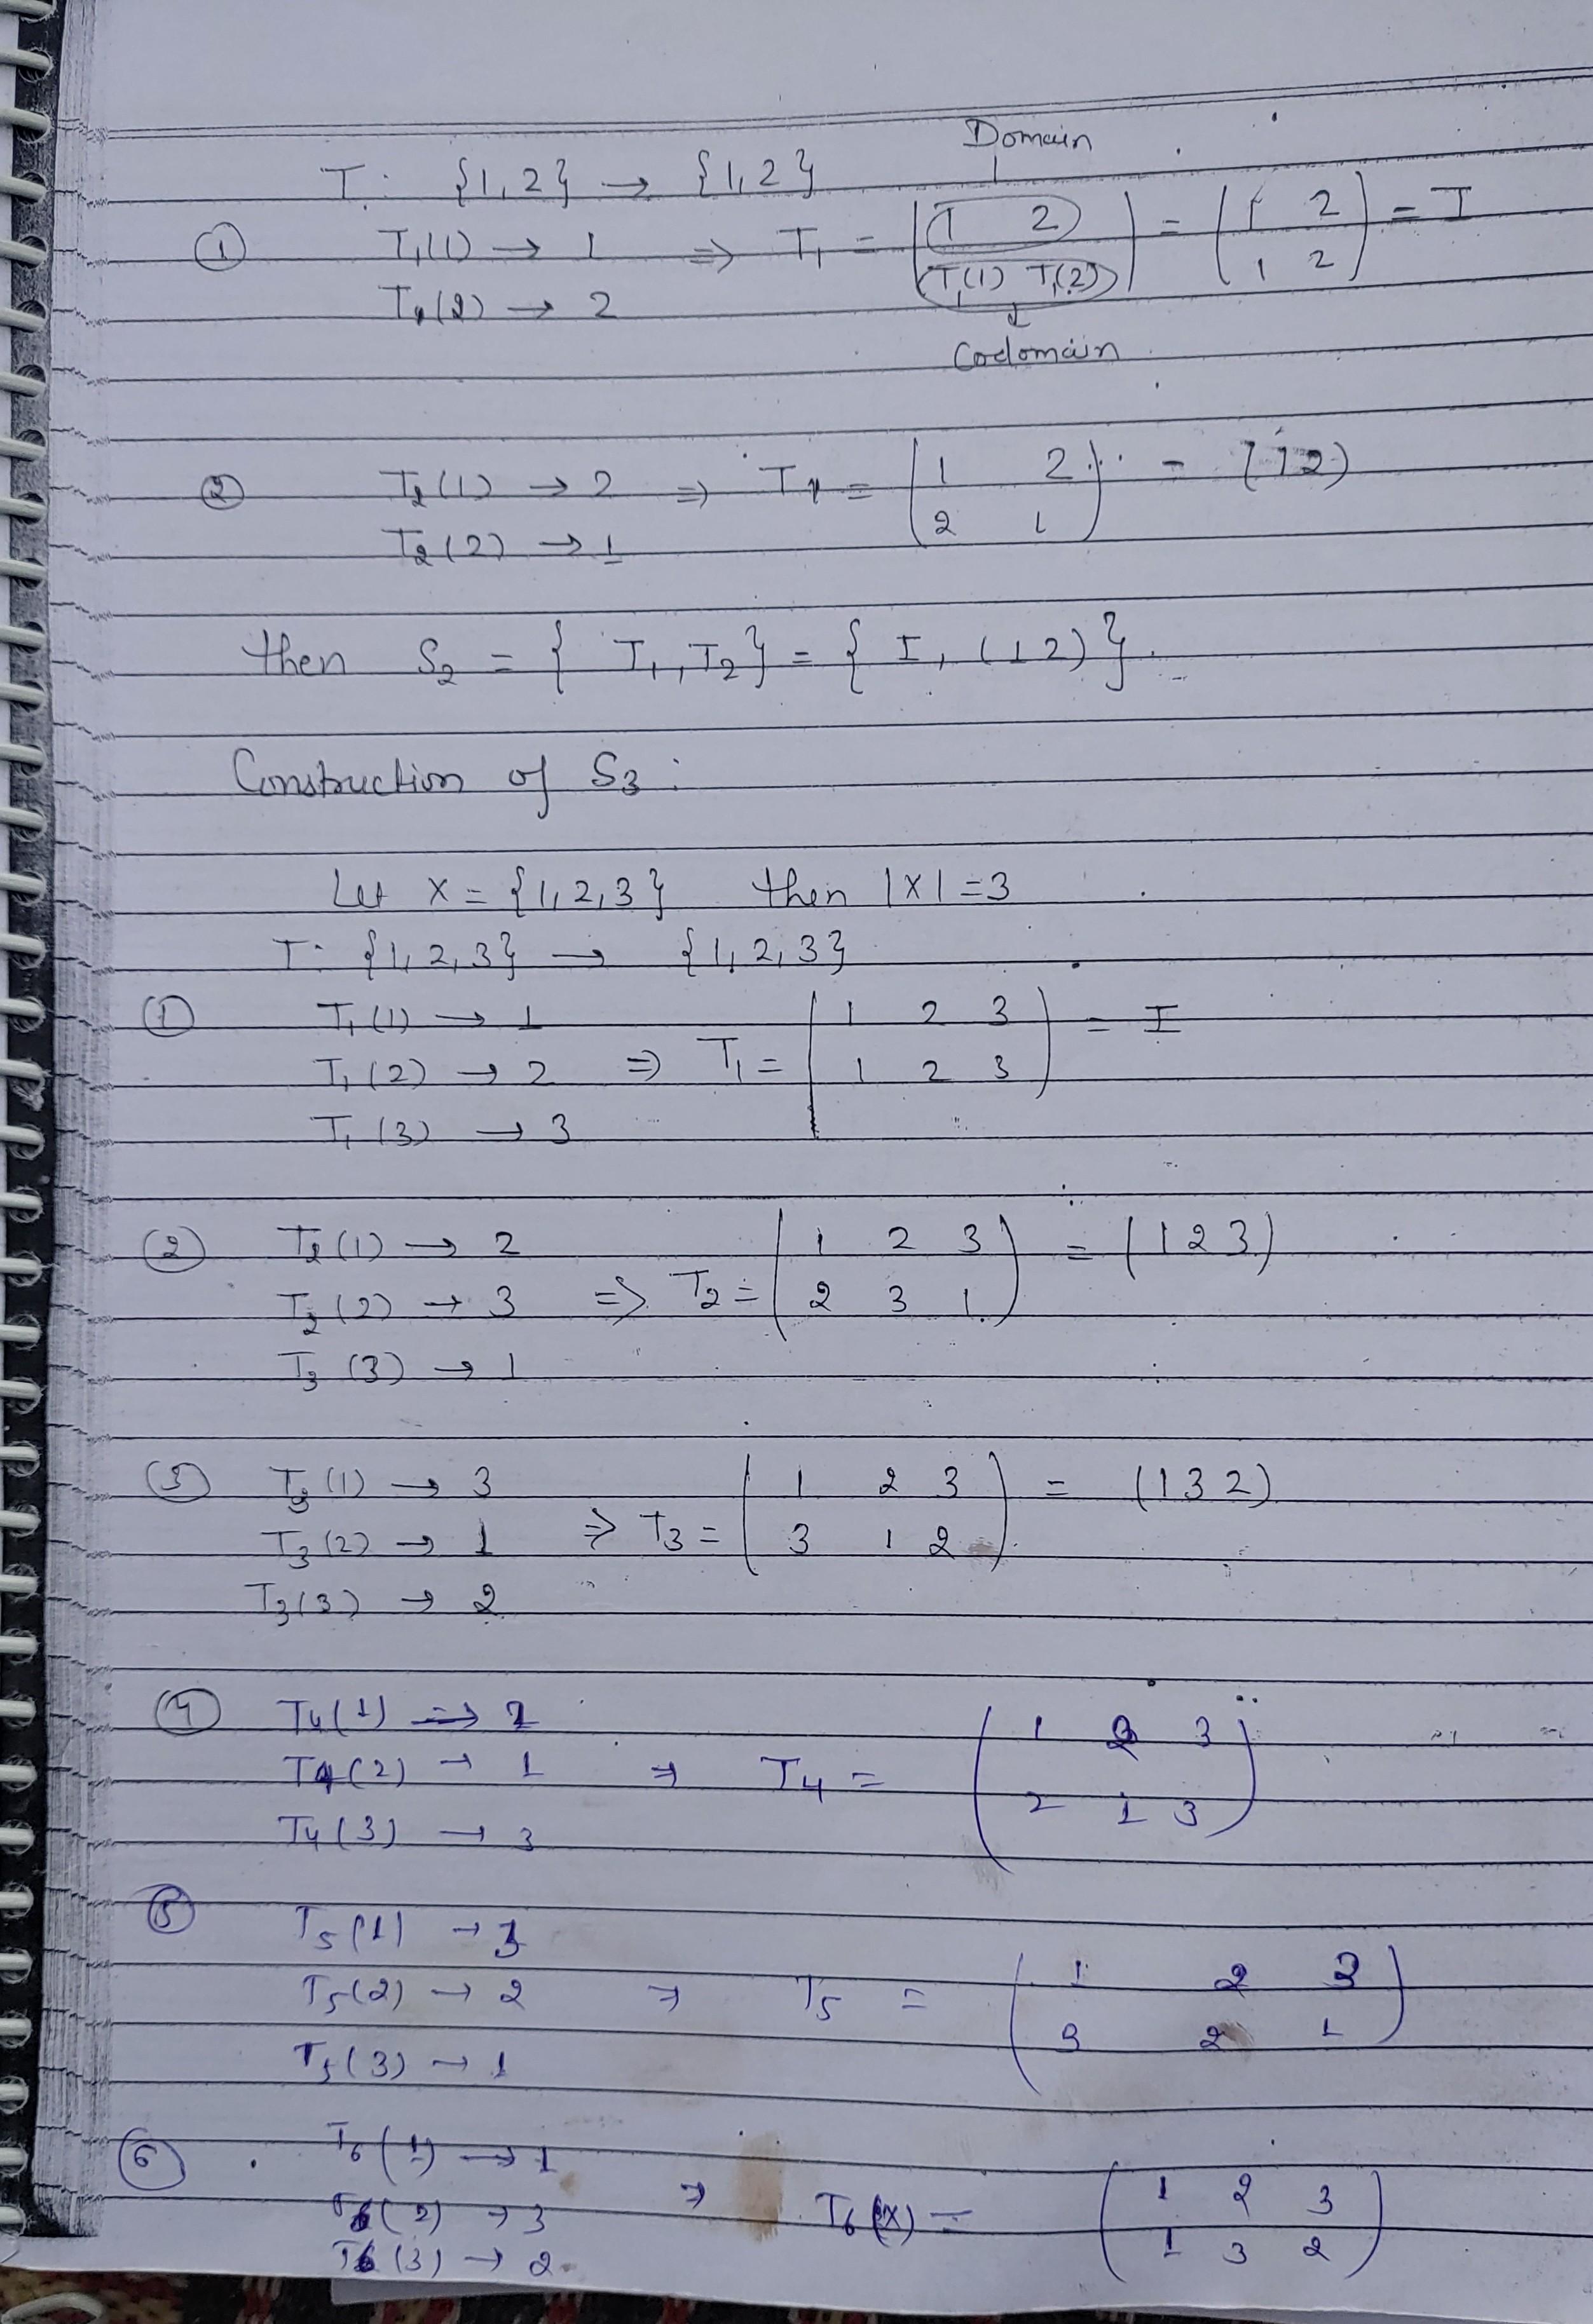 Domain
T: {1,2} → {1,2}
① T₁(1) → 1 ⇒ T₁ = (1 2 / T₁(1) T₁(2)) = (1 2 / 1 2) = I
T₁(2) → 2
Codomain
② T₂(1) → 2 ⇒ T₂ = (1 2 / 2 1) = (12)
T₂(2) → 1
then S₂ = { T₁, T₂} = { I, (12)}.
Construction of S₃:
Let X = {1,2,3} then |X| = 3
T: {1,2,3} → {1,2,3}
① T₁(1) → 1
T₁(2) → 2 ⇒ T₁ = (1 2 3 / 1 2 3) = I
T₁(3) → 3
② T₂(1) → 2
T₂(2) → 3 ⇒ T₂ = (1 2 3 / 2 3 1) = (123)
T₃(3) → 1
③ T₃(1) → 3
T₃(2) → 1 ⇒ T₃ = (1 2 3 / 3 1 2) = (132)
T₃(3) → 2
④ T₄(1) → 2
T₄(2) → 1 ⇒ T₄ = (1 2 3 / 2 1 3)
T₄(3) → 3
⑤ T₅(1) → 3
T₅(2) → 2 ⇒ T₅ = (1 2 3 / 3 2 1)
T₅(3) → 1
⑥ T₆(1) → 1
T₆(2) → 3 ⇒ T₆(x) = (1 2 3 / 1 3 2)
T₆(3) → 2